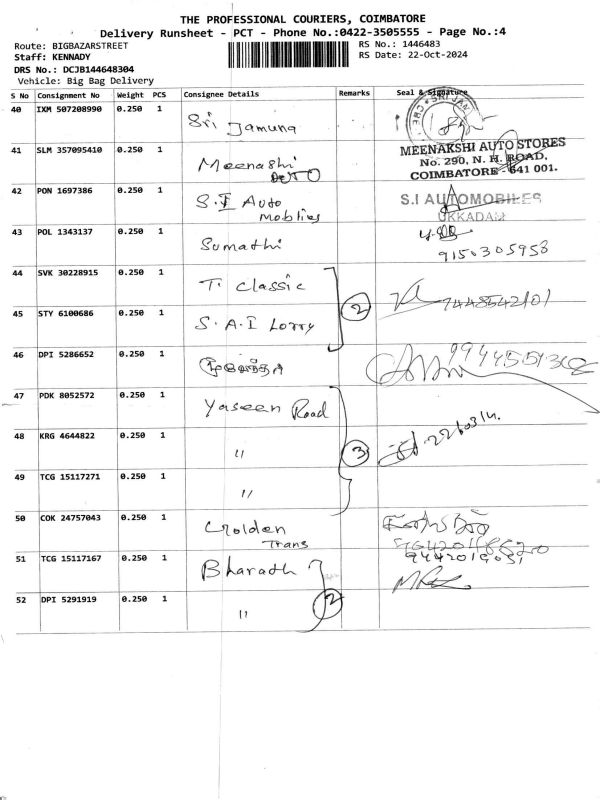 THE PROFESSIONAL COURIERS, COIMBATORE
Delivery Runsheet - PCT - Phone No.:0422-3505555 - Page No.:4
Route: BIGBAZARSTREET
RS No.: 1446483
Staff: KENNADY
RS Date: 22-Oct-2024
DRS No.: DCJB144648304
Vehicle: Big Bag Delivery
S No Consignment No Weight PCS Consignee Details Remarks Seal & Signature
40 IXM 507208990 0.250 1
Sri Jamuna
41 SLM 357095410 0.250 1
Meenashi
Auto
MEENAKSHI AUTO STORES
No. 290, N. H. ROAD,
COIMBATORE - 641 001.
42 PON 1697386 0.250 1
S.I Auto
Moblies
S.I AUTOMOBILES
UKKADAM
43 POL 1343137 0.250 1
Sumathi
9150305958
44 SVK 30228915 0.250 1
T. Classic
2
45 STY 6100686 0.250 1
S.A.I Lorry
46 DPI 5286652 0.250 1
47 PDK 8052572 0.250 1
Yaseen Road
48 KRG 4644822 0.250 1
"
3
49 TCG 15117271 0.250 1
"
50 COK 24757043 0.250 1
Golden
Trans
51 TCG 15117167 0.250 1
Bharath
9442019031
52 DPI 5291919 0.250 1
"
2